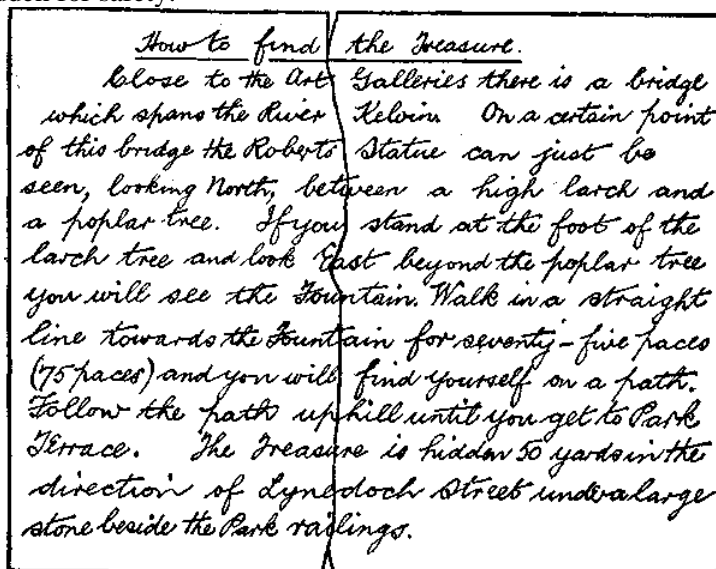 for safety.
How to find the Treasure.
Close to the Art Galleries there is a bridge
which spans the River Kelvin. On a certain point
of this bridge the Roberts Statue can just be
seen, looking North, between a high larch and
a poplar tree. If you stand at the foot of the
larch tree and look East beyond the poplar tree
you will see the Fountain. Walk in a straight
line towards the Fountain for seventy-five paces
(75 paces) and you will find yourself on a path.
Follow the path uphill until you get to Park
Terrace. The Treasure is hidden 50 yards in the
direction of Lynedoch Street under a large
stone beside the Park railings.